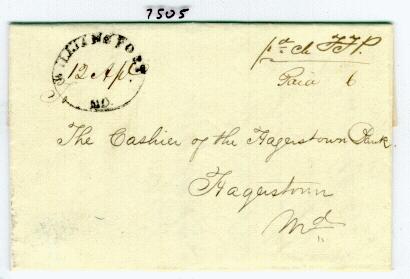 7505
WILLIAMSPORT
12 Apl
MD.
pd ch
Paid 6
The Cashier of the Hagerstown Bank.
Hagerstown
Md